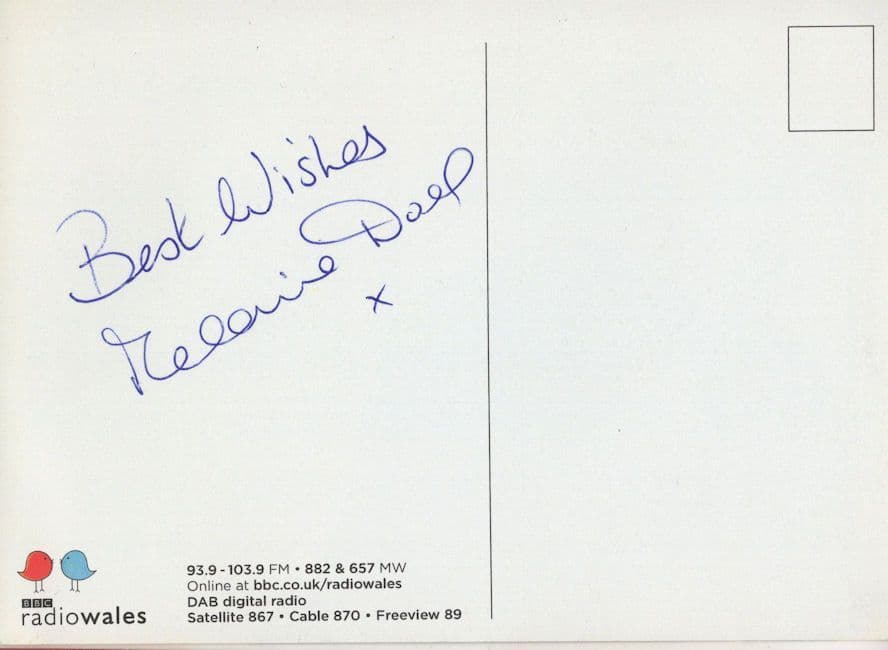 Best Wishes
Melanie Doel
x
BBC
radiowales
93.9 - 103.9 FM • 882 & 657 MW
Online at bbc.co.uk/radiowales
DAB digital radio
Satellite 867 • Cable 870 • Freeview 89